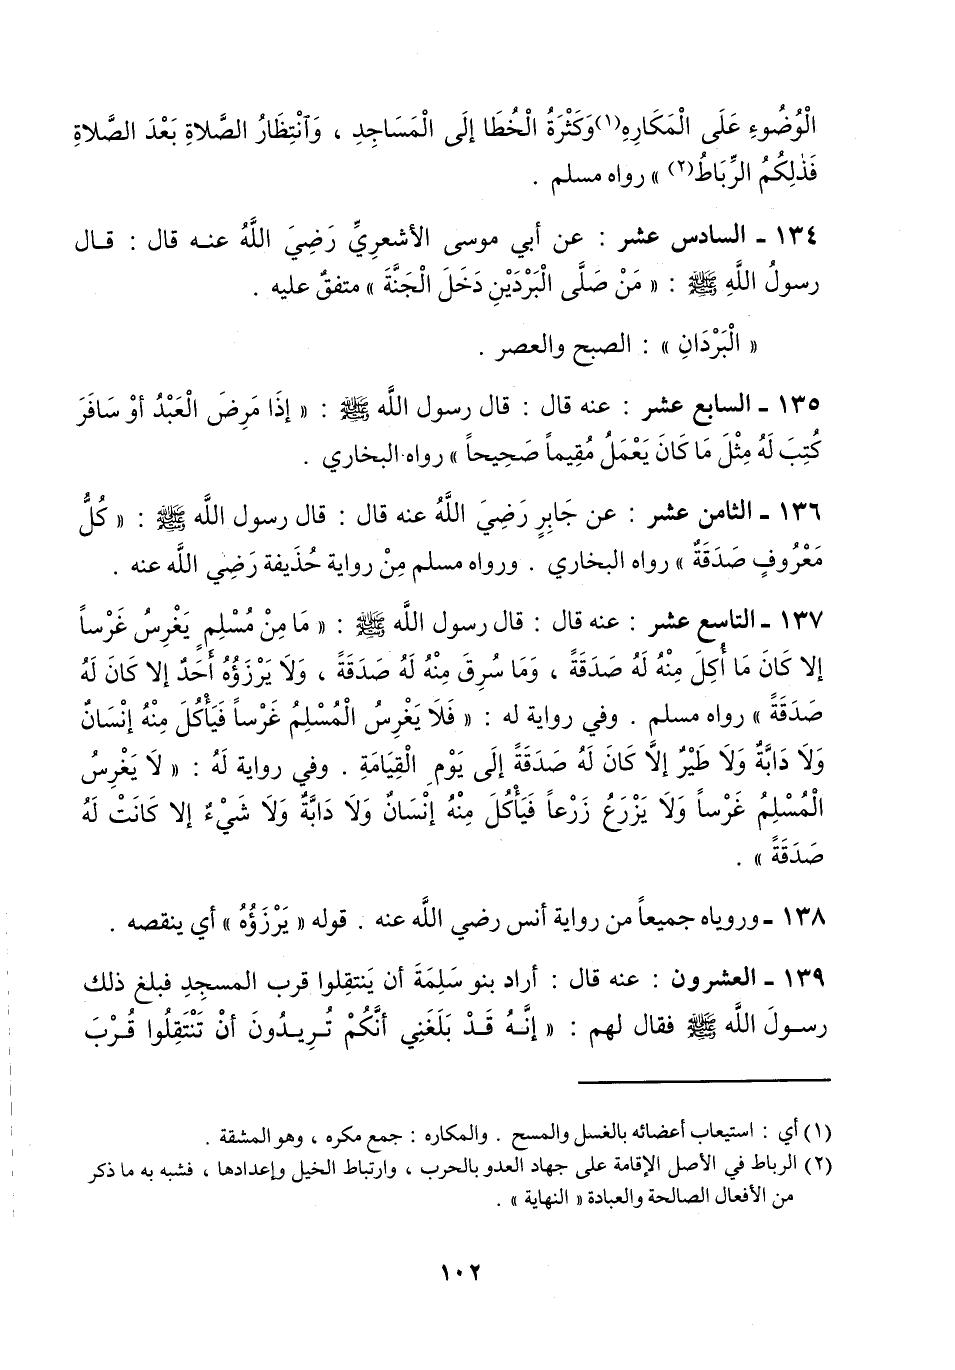 الْوُضُوءِ عَلَى الْمَكَارِهِ(١) وَكَثْرَةُ الْخُطَا إلَى الْمَسَاجِدِ ، وَٱنْتِظَارُ الصَّلاةِ بَعْدَ الصَّلاةِ
فَذٰلِكُمُ الرِّبَاطُ(٢) » رواه مسلم .
١٣٤ ـ السادس عشر : عن أبي موسى الأشعريِّ رَضِيَ اللَّهُ عنـه قال : قـال
رسولُ اللَّهِ ﷺ : « مَنْ صَلَّى الْبَرْدَيْنِ دَخَلَ الْجَنَّةَ » متفقٌ عليه .
« الْبَرْدَانِ » : الصبح والعصر .
١٣٥ ـ السابع عشر : عنه قال : قال رسول اللَّه ﷺ : « إذَا مَرِضَ الْعَبْدُ أوْ سَافَرَ
كُتِبَ لَهُ مِثْلَ مَا كَانَ يَعْمَلُ مُقِيماً صَحِيحاً » رواه البخاري .
١٣٦ ـ الثامن عشر : عن جَابِرٍ رَضِيَ اللَّهُ عنه قال : قال رسول اللَّه ﷺ : « كُلُّ
مَعْرُوفٍ صَدَقَةٌ » رواه البخاري . ورواه مسلم مِنْ رواية حُذَيفة رَضِي اللَّه عنه .
١٣٧ ـ التاسع عشر : عنه قال : قال رسول اللَّه ﷺ : « مَا مِنْ مُسْلِمٍ يَغْرِسُ غَرْساً
إلا كَانَ مَا أُكِلَ مِنْهُ لَهُ صَدَقَةً ، وَمَا سُرِقَ مِنْهُ لَهُ صَدَقَةً ، وَلَا يَرْزَؤُهُ أَحَدٌ إلا كَانَ لَهُ
صَدَقَةً » رواه مسلم . وفي رواية له : « فَلاَ يَغْرِسُ الْمُسْلِمُ غَرْساً فَيَأْكُلَ مِنْهُ إنْسَانٌ
وَلاَ دَابَّةٌ وَلاَ طَيْرٌ إلَّا كَانَ لَهُ صَدَقَةً إلَى يَوْمِ الْقِيَامَةِ . وفي رواية لَهُ : « لاَ يَغْرِسُ
الْمُسْلِمُ غَرْساً وَلاَ يَزْرَعُ زَرْعاً فَيَأْكُلَ مِنْهُ إنْسَانٌ وَلاَ دَابَّةٌ وَلاَ شَيْءٌ إلا كَانَتْ لَهُ
صَدَقَةً » .
١٣٨ ـ ورواه جميعاً من رواية أنس رضي اللَّه عنه . قوله « يَرْزَؤُهُ » أي ينقصه .
١٣٩ ـ العشرون : عنه قال : أراد بنو سَلِمَةَ أن يَنتقِلوا قرب المسجِدِ فبلغ ذلك
رسـولَ اللَّه ﷺ فقال لهم : « إنَّـهُ قَـدْ بَلَغَنِي أنَّكُمْ تُـرِيـدُونَ أنْ تَنْتَقِلُوا قُـرْبَ
(١) أي : استيعاب أعضائه بالغسل والمسح . والمكاره : جمع مكره ، وهو المشقة .
(٢) الرباط في الأصل الإقامة على جهاد العدو بالحرب ، وارتباط الخيل وإعدادها ، فشبه به ما ذكر
من الأفعال الصالحة والعبادة « النهاية » .
١٠٢